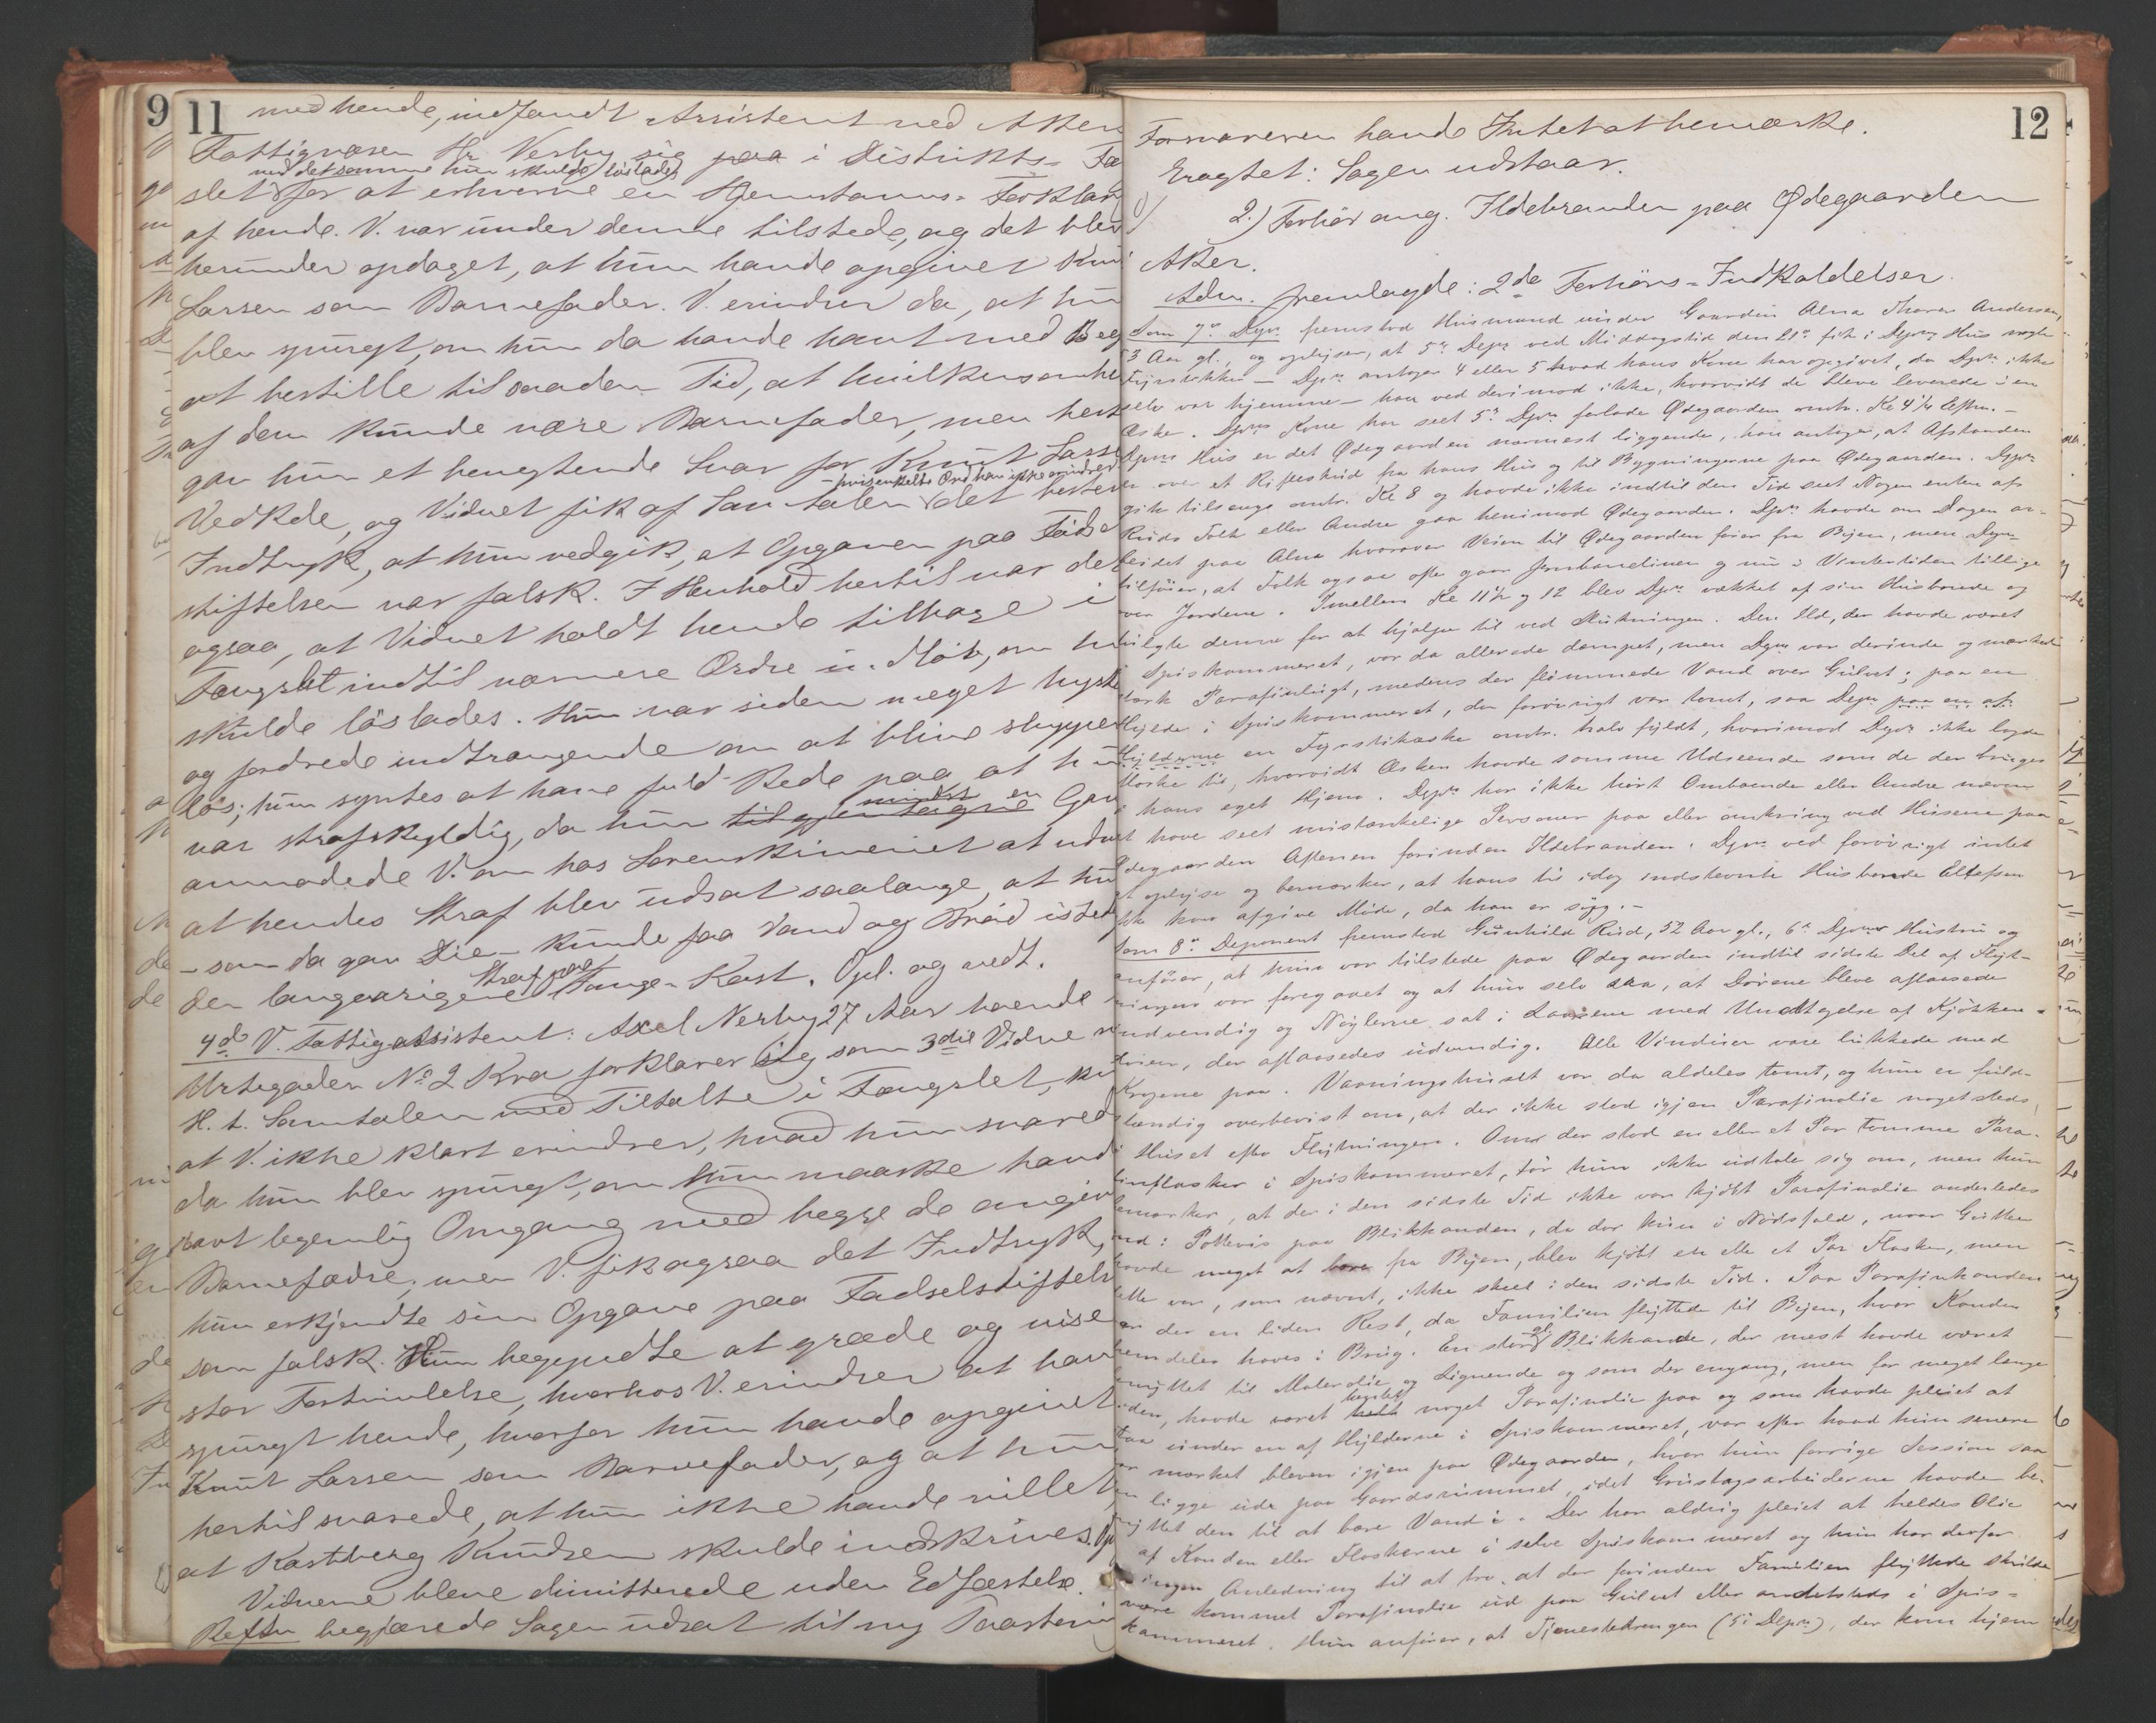 9
11
med hende, indfandt Assistent ved Aker
Fattigvæsen Hr Nerby sig paa i Distrikts-Fæ
ved det samme hun skulde løslades
slet for at erhverve en Hjemstavns-Forklar
af hende. V. var under denne tilstede, og det blev
herunder opdaget, at hun havde opgivet Knu
Larsen som Barnefader. V. erindrer da, at hu
blev spurgt, om hun da havde havt med Beg
at bestille til saadan Tid, at hvilkensomhe
af dem kunde være Barnefader, men hert
gav hun et benegtende Svar for Knut Larse
- hvis enkelte Ord han ikke erindrer
Vedkde, og Vidnet fik af Samtalen det bestem
Indtryk, at hun vedgik, at Opgaven paa Fødse
stiftelsen var falsk. I Henhold hertil var det
ogsaa, at Vidnet holdt hende tilbage i
Fængslet indtil nærmere Ordre i. Møte, om hu
skulde løslades. Hun var siden meget hyste
og fordrede indtrængende om at blive sluppet
løs; hun syntes at have fuld Rede paa, at hun
mindst en
var strafskyldig, da hun til gjentagne Gan
anmodede V. om hos Sorenskriveriet at udvi
at hendes Straf blev udsat saalænge, at hun
- som da gav Die - kunde faa Vand og Brød isted
Straf paa
den langvarigere Fange-Kost. Opl. og vedt.
4de V. Fattigassistent: Axel Nerby 27 Aar boende
Urtegaden No 2 Kra forklarer sig som 3die Vidne
H. t. Samtalen med Tiltalte i Fængslet, ku
at V. ikke klart erindrer, hvad hun svared
da hun blev spurgt, om hun maaske havd
havt legemlig Omgang med begge de angiv
Barnefædre; men V. fik ogsaa det Indtryk,
hun erkjendte sin Opgave paa Fødselsstiftels
som falsk. Hun begyndte at græde og vise
stor Fortvivlelse, hvorhos V. erindrer at hav
spurgt hende, hvorfor hun havde opgivet
Knut Larsen som Barnefader, og at hun
hertil svarede, at hun ikke havde villet,
at Kastberg Knudsen skulde indskrives. Op
Vidnerne bleve dimitterede uden Edfæstelse.
Reftn begjærede Sagen udsat til ny Berammelse
12
Forsvareren havde Intet at bemærke.
Eragtet: Sagen udstaar.
2.) Forhør ang. Ildebranden paa Ødegaarden
Aker.
Adm. fremlagde: 2de Forhørs-Indkaldelser.
Som 7de Depnt fremstod Husmand under Gaarden Alna Thorer Andersen,
53 Aar gl., og oplyser, at 5te Depnt ved Middagstid den 21de fik i Dpnts Hus nogle
Fyrstikker - Dpnt antager 4 eller 5 hvad hans Kone har opgivet, da Dpnt ikke
selv var hjemme - han ved derimod ikke, hvorvidt de bleve leverede i en
Æske. Dpnts Kone har seet 5te Dpnt forlade Ødegaarden omtr. Kl 4 1/4 Eftm. -
Dpnts Hus er det Ødegaarden nærmest liggende, han antager, at Afstanden
er over et Rifleskud fra hans Hus og til Bygningerne paa Ødegaarden. Dpnt
gik tilsengs omtr. Kl 8 og havde ikke indtil den Tid seet Nogen enten af
Ruds Folk eller Andre gaa henimod Ødegaarden. Dpnt havde om Dagen ar-
beidet paa Alna hvorover Veien til Ødegaarden fører fra Byen, men Dpnt
tilføier, at Folk ogsaa ofte gaar Jernbanelinien og nu i Vintertiden tillige
over Jordene. Imellem Kl 11 1/2 og 12 blev Dpnt vækket af sin Husbonde og
fulgte denne for at hjælpe til ved Slukningen. Den Ild, der havde været
i Spiskammeret, var da allerede dæmpet, men Dpnt var derinde og mærkede
stærk Parafinlugt, medens der flømmede Vand over Gulvet; paa en
Hylde i Spiskammeret, der forøvrigt var tomt, saa Depnt paa en af
Hylderne en Fyrstikæske omtr. halv fyldt, hvorimod Dpnt ikke lagde
Mærke til, hvorvidt Æsken havde samme Udseende som de der bruges
i hans eget Hjem. Dpnt har ikke hørt Omboende eller Andre nævne
at have seet mistænkelige Personer paa eller omkring ved Husene paa
Ødegaarden Aftenen forinden Ildebranden. Dpnt ved forøvrigt intet
at oplyse og bemærker, at hans til idag indstevnte Husbonde Ellefsen
ikke kan afgive Møde, da han er syg. -
Som 8de Deponent fremstod Gunhild Rud, 52 Aar gl., 6te Dpnts Hustru og
anfører, at hun var tilstede paa Ødegaarden indtil sidste Del af Flyt-
ningen var foregaaet og at hun selv saa, at Dørene bleve aflaasede
indvendig og Nøglerne sat i Laasene med Undtagelse af Kjøkken-
døren, der aflaasedes udvendig. Alle Vinduer vare lukkede med
Krogene paa. Vaaningshuset var da aldeles tomt, og hun er fuld-
stændig overbevist om, at der ikke stod igjen Parafinolie nogetsteds
i Huset efter Flytningen. Om der stod en eller et Par tomme Para-
finflasker i Spiskammeret, tør hun ikke udtale sig om, men hun
bemærker, at der i den sidste Tid ikke var kjøbt Parafinolie anderledes
end: Pottevis paa Blikkanden, da der kun i Nødsfald, naar Gutten
havde meget at bære fra Byen, blev kjøbt en eller et Par Flasker, men
dette var, som nævnt, ikke skeet i den sidste Tid. Paa Parafinkanden
var der en liden Rest, da Familien flyttede til Byen, hvor Kanden
fremdeles haves i Brug. En stor gl. Blikkande, der mest havde været
benyttet til Malerolie og Lignende og som der engang, men for meget længe
siden, havde været hentet noget Parafinolie paa og som havde pleiet at
staa under en af Hylderne i Spiskammeret, var efter hvad hun senere
har mærket bleven igjen paa Ødegaarden, hvor hun forrige Session saa
den ligge ude paa Gaardsrummet, idet Grustagsarbeiderne havde be-
nyttet den til at bære Vand i. Der har aldrig pleiet at heldes Olie
af Kanden eller Flaskerne i selve Spiskammeret og hun har derfor
ingen Anledning til at tro, at der forinden Familien flyttede skulde
være kommet Parafinolie ud paa Gulvet eller andetsteds i Spis-
kammeret. Hun anfører, at Tjenestedrengen (5te Depnt), der kom hjem